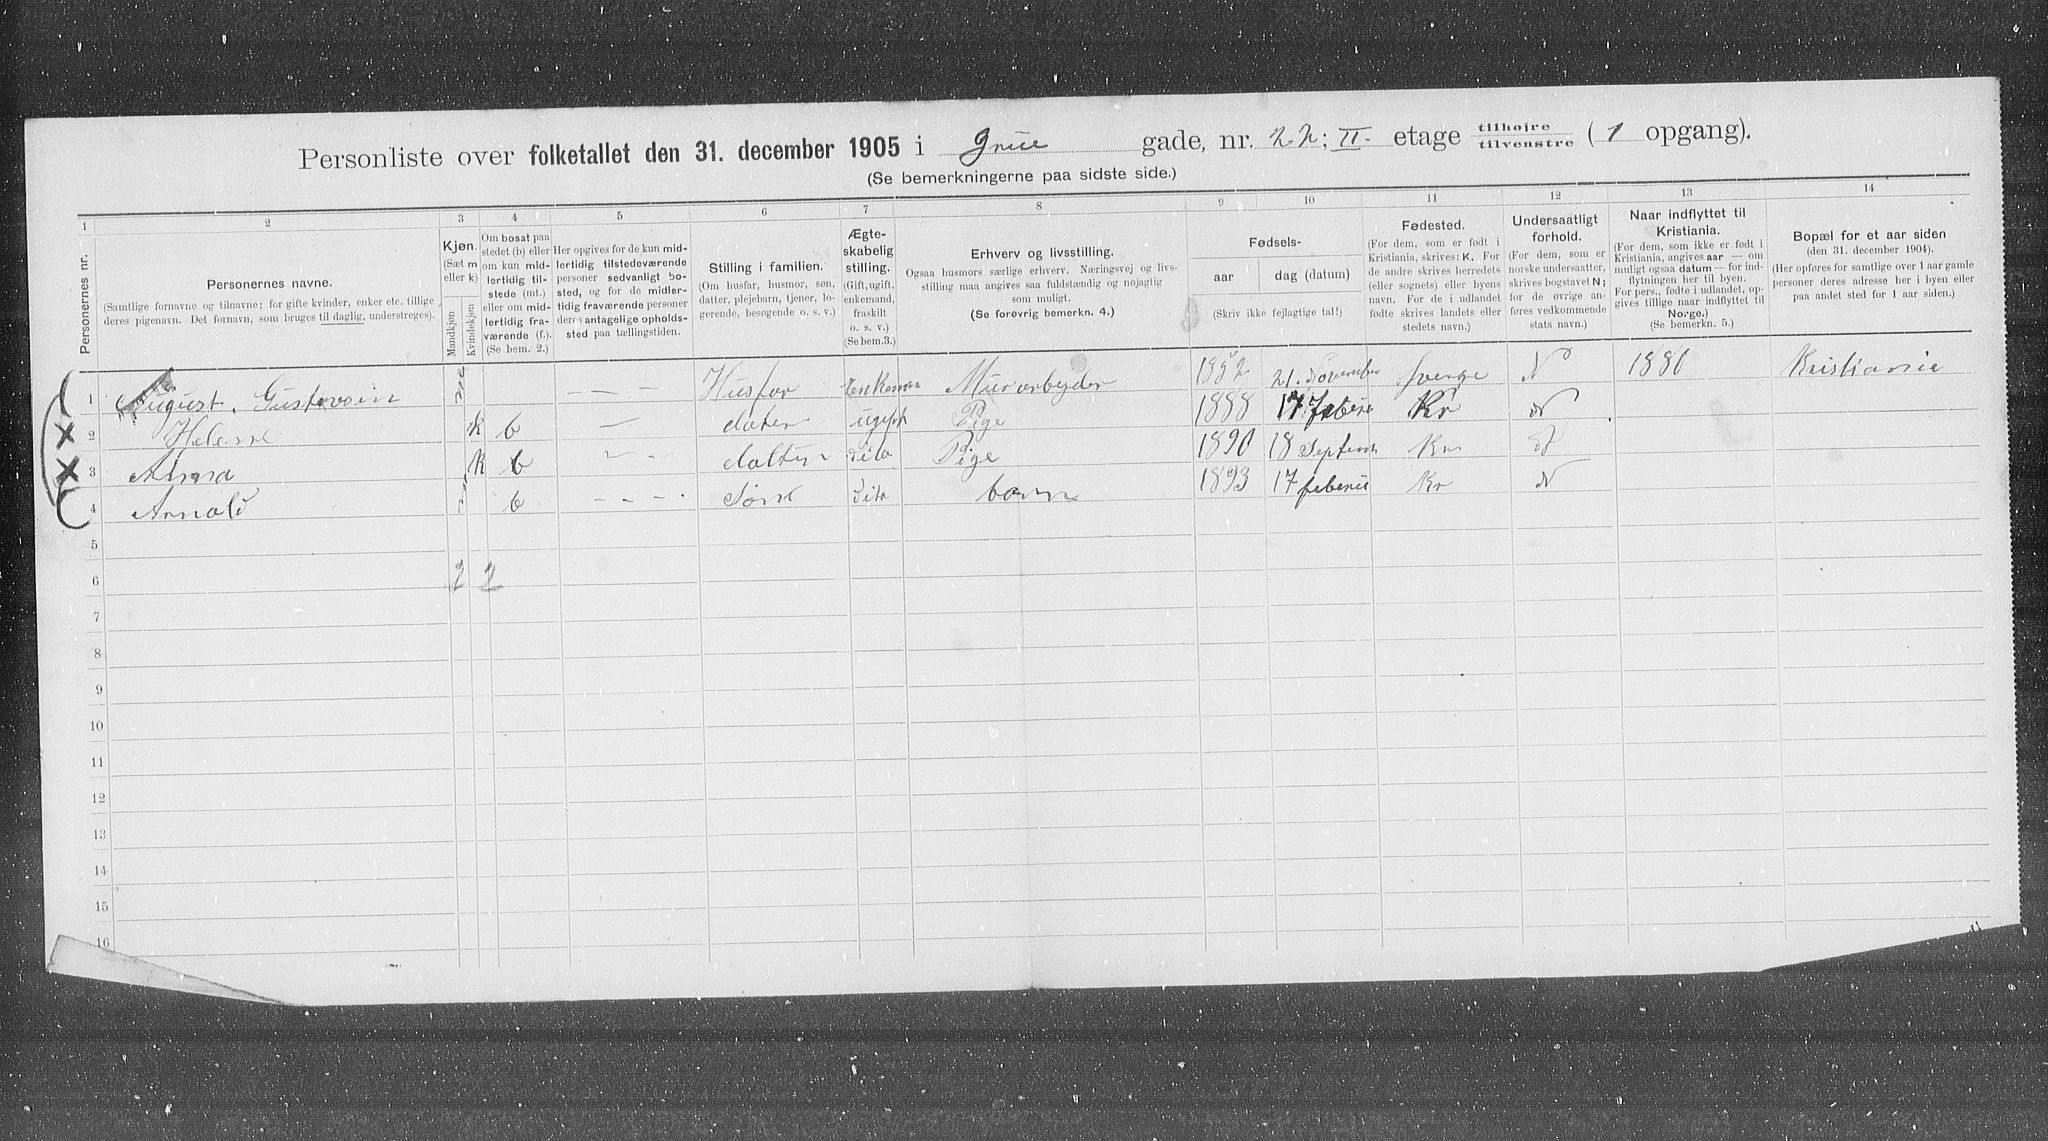 Personliste over folketallet den 31. december 1905 i Grüe gade, nr. 22; II. etage tilhøjre tilvenstre (1 opgang).
(Se bemerkningerne paa sidste side.)
1 2 3 4 5 6 7 8 9 10 11 12 13 14
Personernes nr.
Personernes navne.
(Samtlige fornavne og tilnavne; for gifte kvinder, enker etc. tillige deres pigenavn. Det fornavn, som bruges til daglig, understreges).
Kjøn.
(Sæt m eller k)
Mandkjøn
Kvindekjøn
Om bosat paa stedet (b) eller om kun midlertidig tilstede (mt.) eller om midlertidig fraværende (f.).
(Se bem. 2.)
Her opgives for de kun midlertidig tilstedeværende personer sedvanligt bosted, og for de midlertidig fraværende personer deres antagelige opholdssted paa tællingstiden.
Stilling i familien.
(Om husfar, husmor, søn, datter, plejebarn, tjener, logerende, besøgende o. s. v.)
Ægteskabelig stilling.
(Gift, ugift, enkemand, fraskilt o. s. v.)
(Se bem. 3.)
Erhverv og livsstilling.
Ogsaa husmors særlige erhverv. Næringsvej og livsstilling maa angives saa fuldstændig og nøjagtig som muligt.
(Se forøvrig bemerkn. 4.)
Fødsels-
aar
dag (datum)
(Skriv ikke fejlagtige tal!)
Fødested.
(For dem, som er født i Kristiania, skrives: K. For de andre skrives herredets (eller sognets) eller byens navn. For de i udlandet fødte skrives landets eller stedets navn.)
Undersaatligt forhold.
(For dem, som er norske undersaatter, skrives bogstavet N; for de øvrige anføres vedkommende stats navn.)
Naar indflyttet til Kristiania.
(For dem, som ikke er født i Kristiania, angives aar — om muligt ogsaa datum — for indflytningen her til byen. For pers., fødte i udlandet, opgives tillige naar indflyttet til Norge.)
(Se bemerkn. 5.)
Bopæl for et aar siden
(den 31. december 1904).
(Her opføres for samtlige over 1 aar gamle personer deres adresse her i byen eller paa andet sted for 1 aar siden.)
1 August. Gustavsein m — — — Husfar Murarbejder 21. November Sverge N 1880 Kristiania
2 Helene k b — dater ugift Pige 1888 17 Kr N
3 k b — — datter dito Pige 1890 18 Septem Kr N
4 Arnold m b — — — Sönn dito barn 1893 17 Kr N
5
6 2 2
7
8
9
10
11
12
13
14
15
16